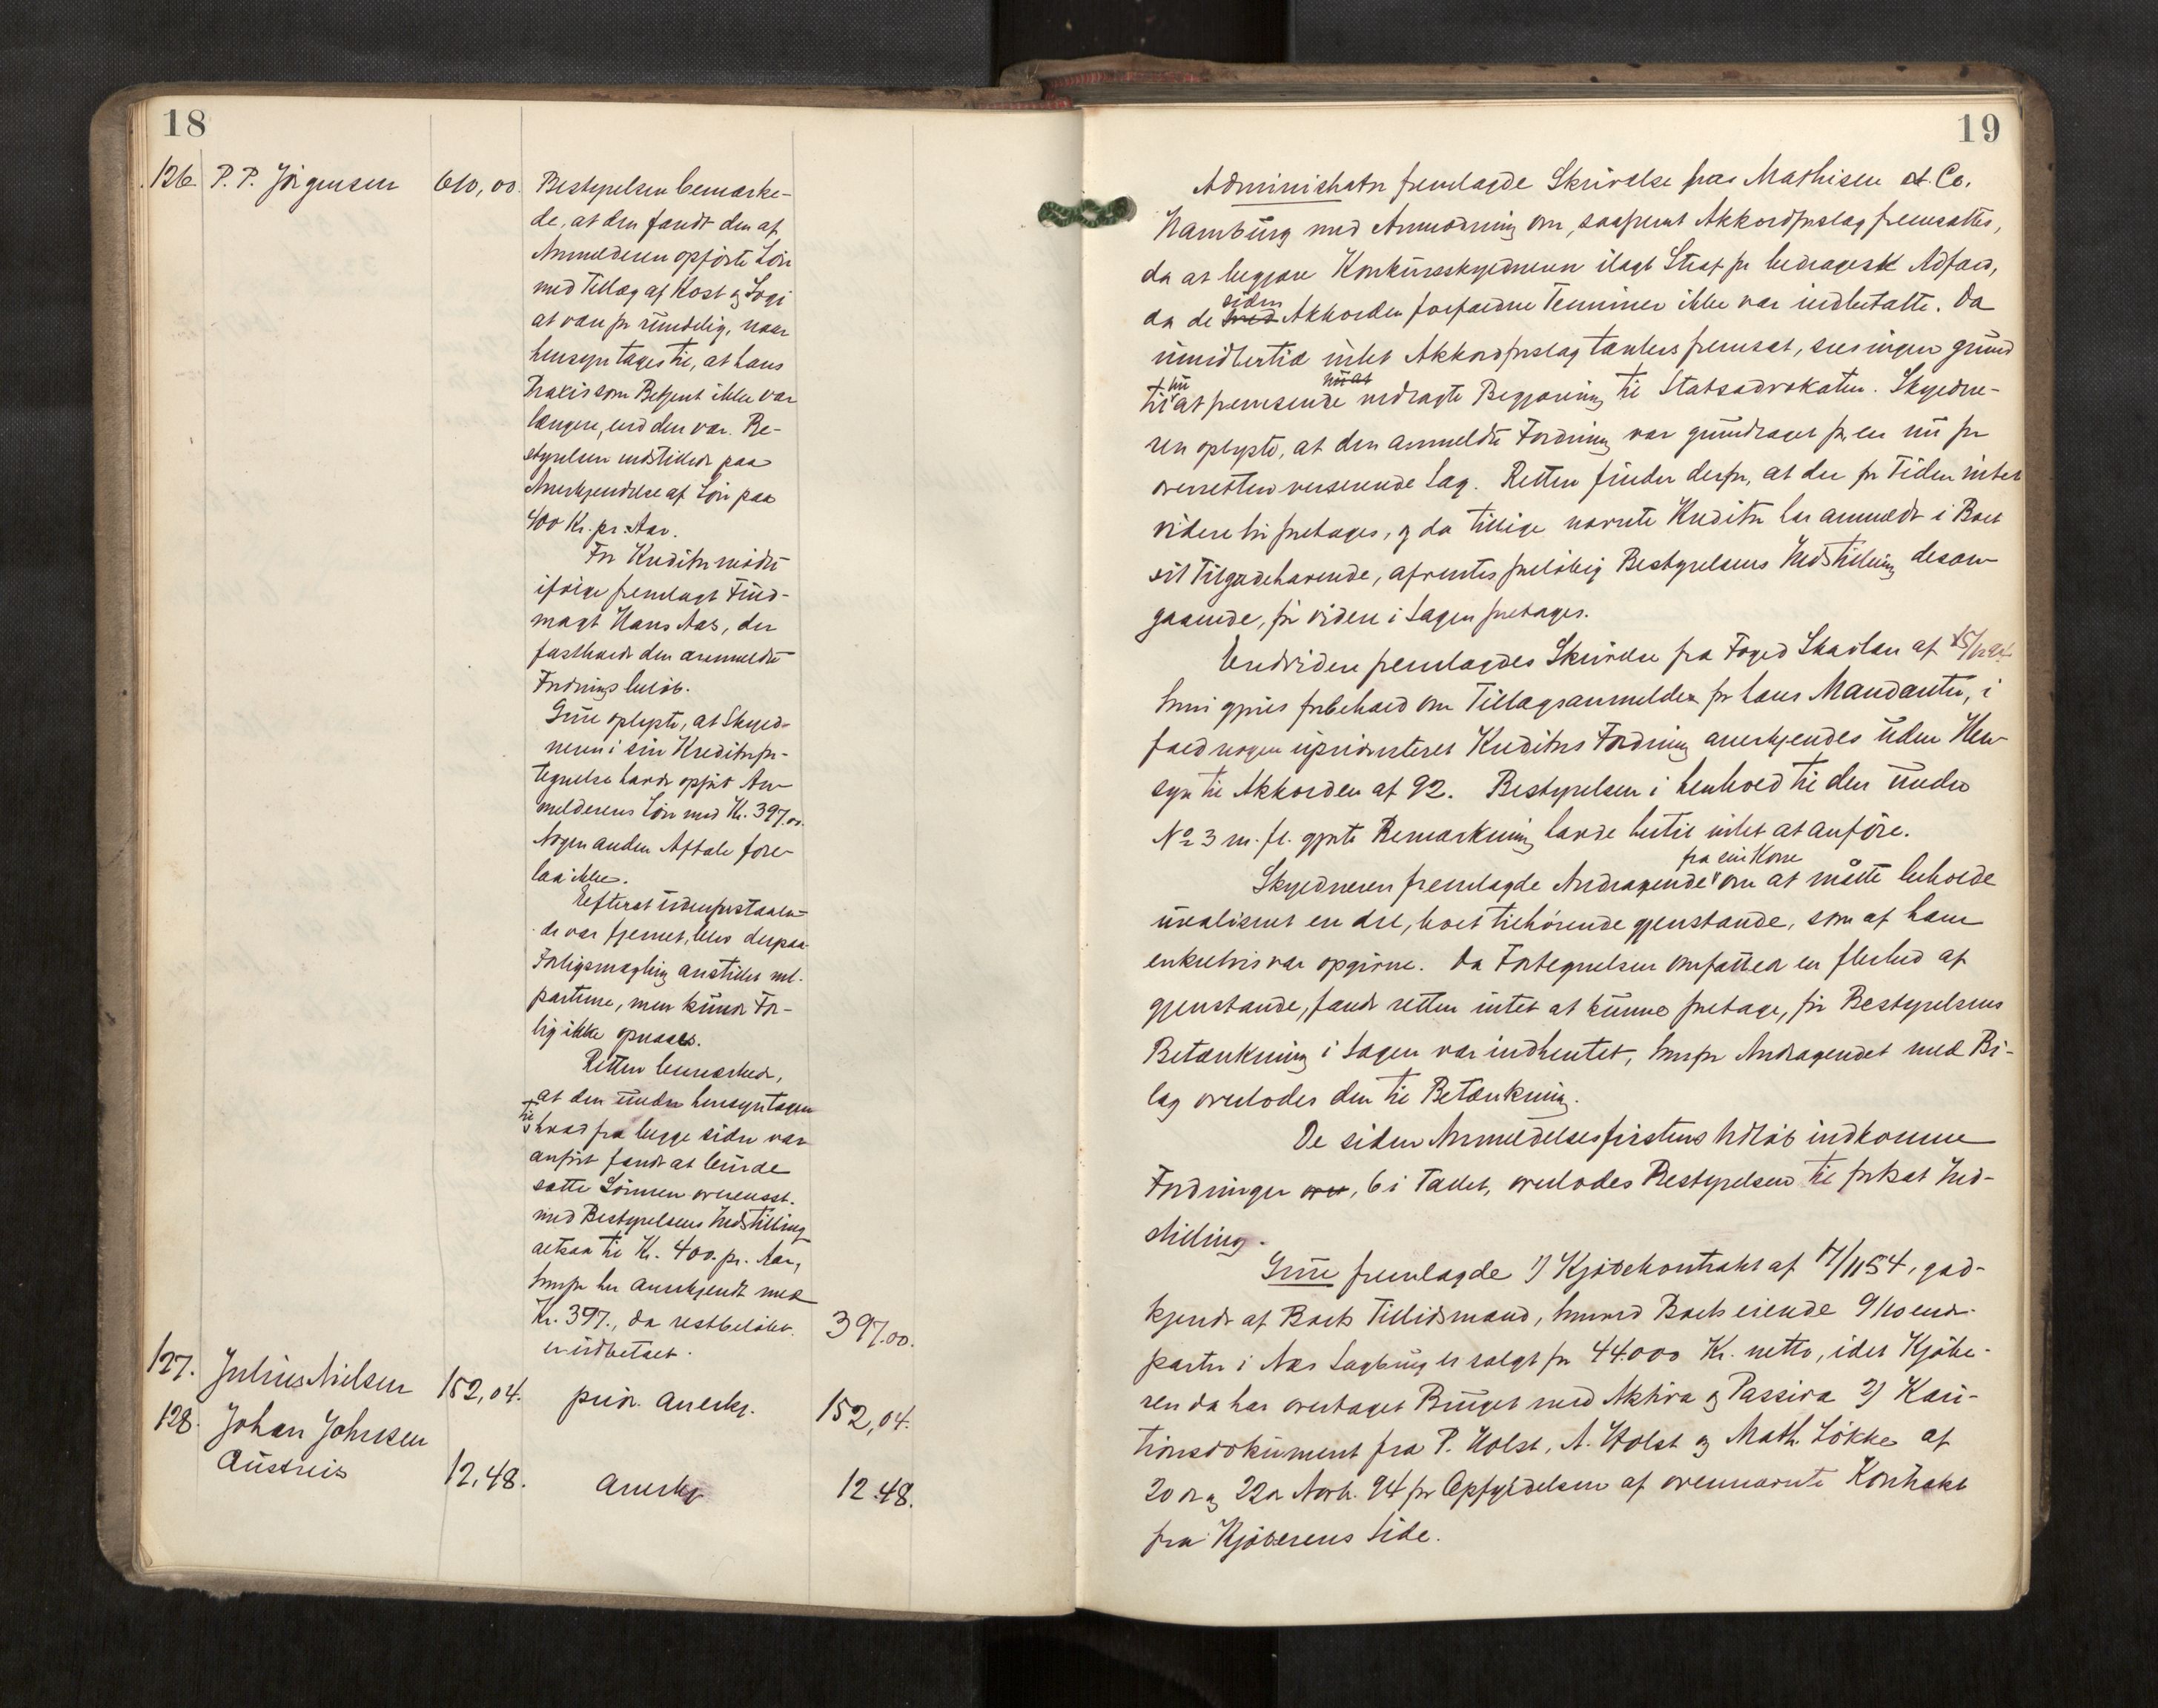 18
126. P. P. Jörgensen 610,00. Bestyrelsen bemærke-
de, at den fandt den af
Anmelderen opførte Løn
med Tillæg af Kost og Logi
at være for rundelig, naar
hensyn tages til, at hans
Praxis som Betjent ikke var
længere, end den var. Be-
styrelsen indstillede paa
Anerkjendelse af Løn paa
400 Kr. pr. Aar.
For Kreditor mødte
ifølge fremlagt Fuld-
magt Hans Aas, der
fastholdt den anmeldte
Fordrings beløb.
Grüe oplyste, at Skyld-
neren i sin Kreditorfor-
tegnelse havde opført An-
melderens Løn med Kr. 397.00.
Nogen anden Aftale fore-
laa ikke.
Efterat udenforstaaen-
de var fjernet, blev derpaa
Forligsmægling anstillet ml.
parterne, men kunde For-
lig ikke opnaaes.
Retten bemærkede,
at den under hensyntagen
til
hvad fra begge sider var
anført fandt at burde
sætte Lønnen overensst.
med Bestyrelsens Indstilling
altsaa til Kr. 400. pr. Aar,
hvorfor her anerkjendt med
Kr. 397., da restbeløbet 397.00.
er udbetalt.
127. Julius Nielsen 152,04. prior. anerkj. 152,04.
128. Johan Johnsen
Austreis 12,48. Anerkj 12.48.
19
Administrator fremlagde Skrivelse fra Mathisen et. Co.
Hamburg med Anmodning om, saafremt Akkordforslag fremsattes,
da at begjære Konkursskyldneren ilagt Straf for bedragersk Adfærd,
siden
da de med Akkorden forfaldne Terminer ikke var indbetalte. Da
imidlertid intet Akkordforslag tænkes fremsat, sees ingen grund
nu nu at
til at fremsende nedlagte Begjæring til Statsadvokaten. Skyldne-
ren oplyste, at den anmeldte Fordring var grundlaget for en nu for
overretten verserende Sag. Retten finder derfor, at der for Tiden intet
videre bør foretages, og da tillige nævnte Kreditor har anmeldt i Boet
sit Tilgodehavende, afventes foreløbig Bestyrelsens Indstilling desan-
gaaende, før videre i Sagen foretages.
Endvidere fremlagdes Skrivelse fra Foged Skavlan af 15/12 94
hvori gjøres forbehold om Tillægsanmeldelse for hans Mandanter, i
fald nogen uprioriteret Kreditors Fordring anerkjendes uden Hen-
syn til Akkorden af 92. Bestyrelsen i henhold til den under
No 3 m. fl. gjorte Bemærkning havde hertil intet at anføre.
fra sin Kone
Skyldneren fremlagde Andragende om at måtte beholde
urealiseret en del, boet tilhørende gjenstande, som af ham
enkeltvis var opgivne. Da Fortegnelsen omfatter en flerhed af
gjenstande, fandt retten intet at kunne foretage, før Bestyrelsens
Betænkning i Sagen var indhentet, hvorfor Andragendet med Bi-
lag overlodes den til Betænkning.
De siden Anmeldelsesfristens Udløb indkomne
Fordringer over, 6 i Tallet, overlodes Bestyrelsen til forksat Ind-
stilling.
Grüe fremlagde 1) Kjøbekontrakt af 17/11 94, god-
kjendt af Boets Tillidsmand, hvorved Boets eiende 9/10 ende
parter i Næs Sagbrug er solgt for 44.000 Kr. netto, idet Kjøbe-
ren da har overtaget Bruget med Aktiva og Passiva 2) Kau-
tionsdokument fra P. Holst, A. Holst og Math. Løkke af
20 de og 22 de Novb. 94 for Opfyldelsen af ovennævnte Kontrakt
fra Kjøberens Side.